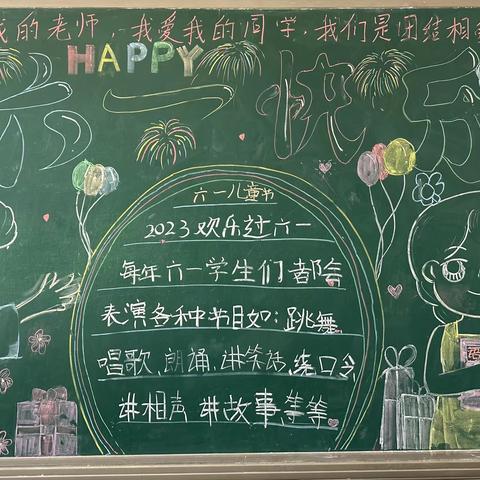 我的老师,我爱我的同学,我们是团结相
HAPPY
六一快乐
六一儿童节
2023欢乐过六一
每年六一学生们都会
表演各种节目如:跳舞
唱歌,朗诵,讲笑话,绕口令
讲相声 讲故事等等